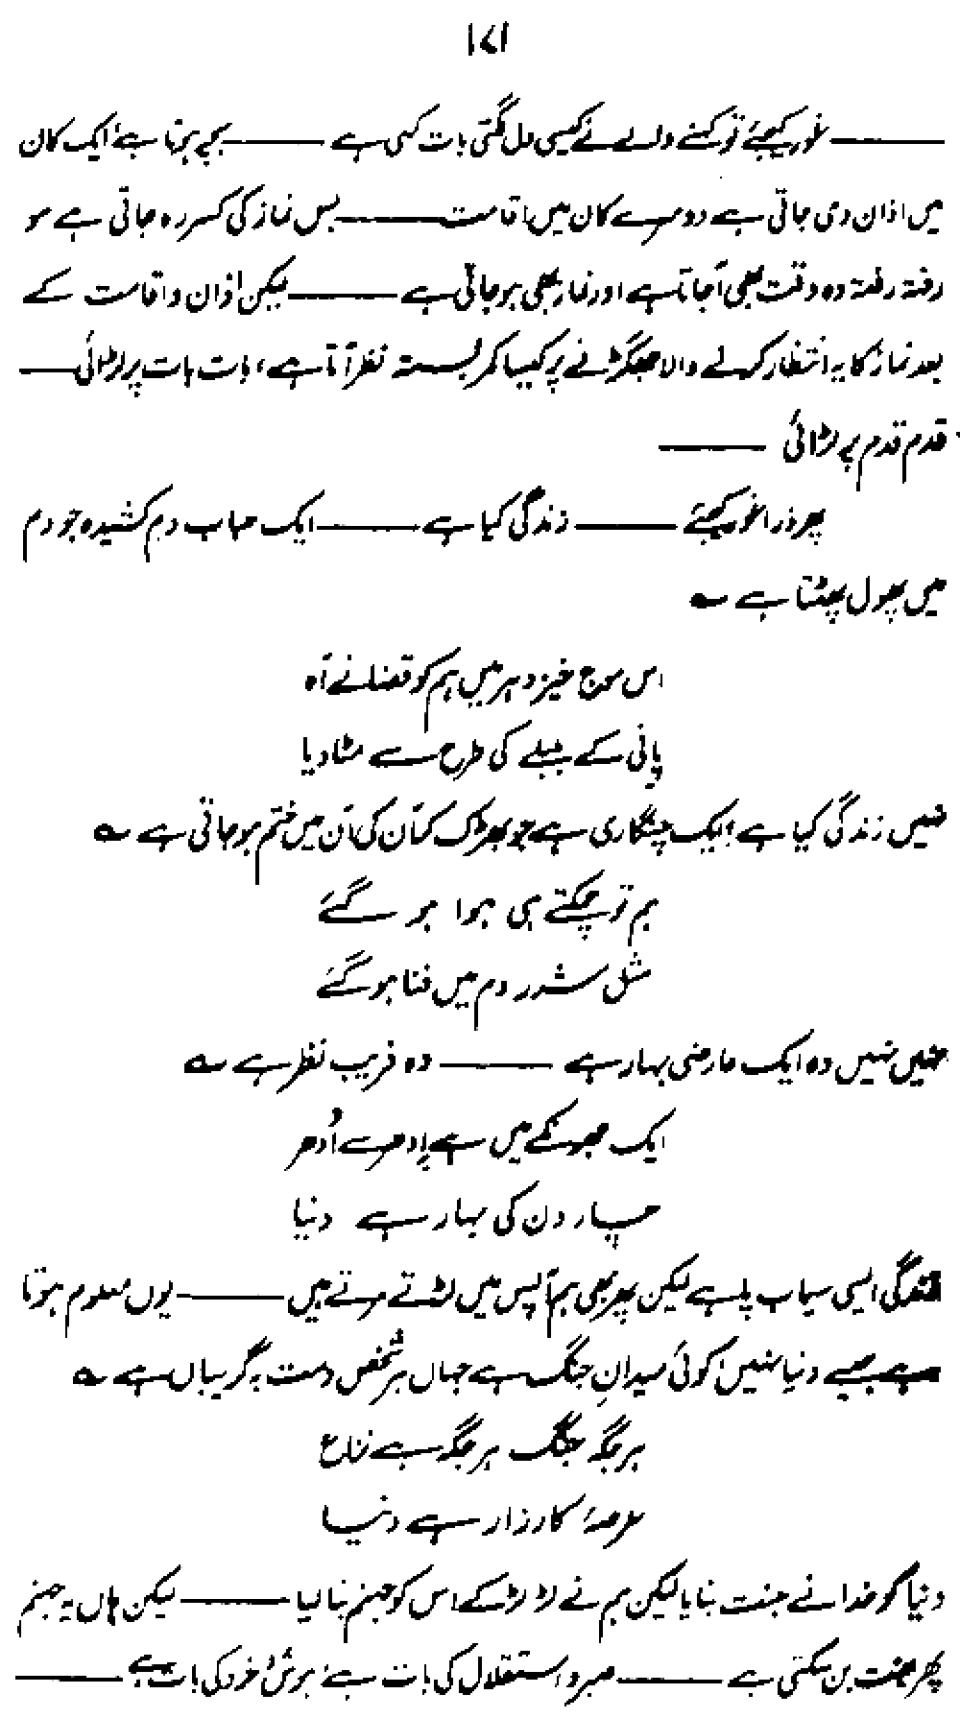 ۱۷۱
——— غور کیجئے تو کہنے والے نے کیسی دل لگتی بات کہی ہے ——— بچہ ہوتا ہے ایک کان
میں اذان دی جاتی ہے دوسرے کان میں اقامت ——— بس نماز کی کسر رہ جاتی ہے سو
رفتہ رفتہ وہ وقت بھی آجاتا ہے اور نماز بھی ہوجاتی ہے ——— لیکن اذان و اقامت کے
بعد نماز کا یہ انتظار کرنے والا جھگڑنے پر کیسا کمربستہ نظر آتا ہے، بات بات پر لڑائی ———
قدم قدم پر لڑائی ———
پھر ذرا غور کیجئے ——— زندگی کیا ہے ——— ایک حباب دم کشیدہ جو دم
میں پھول پھٹتا ہے ؎
اس موج خیز دہر میں ہم کو قضا نے آہ
پانی کے بلبلے کی طرح سے مٹا دیا
نہیں زندگی کیا ہے ایک چنگاری ہے جو بھڑک کر آن کی آن میں ختم ہوجاتی ہے ؎
ہم تو چمکتے ہی ہوا ہو گئے
مثل شرر دم میں فنا ہوگئے
نہیں نہیں وہ ایک عارضی بہار ہے ——— وہ فریب نظر ہے ؎
ایک جھونکے میں ہے اِدھر سے اُدھر
چار دن کی بہار ہے دنیا
زندگی ایسی سیماب پا ہے لیکن پھر بھی ہم آپس میں لڑتے مرتے ہیں ——— یوں معلوم ہوتا
ہے جیسے دنیا نہیں کوئی میدانِ جنگ ہے جہاں ہر شخص دست بہ گریباں ہے ؎
ہر جگہ جنگ ہر جگہ ہے نزاع
عرصۂ کارزار ہے دنیا
دنیا کو خدا نے جنت بنایا لیکن ہم نے لڑ لڑ کے اس کو جہنم بنا لیا ——— لیکن ہاں یہ جہنم
پھر جنت بن سکتی ہے ——— صبر و استقلال کی بات ہے، ہوش و خرد کی بات ہے ———